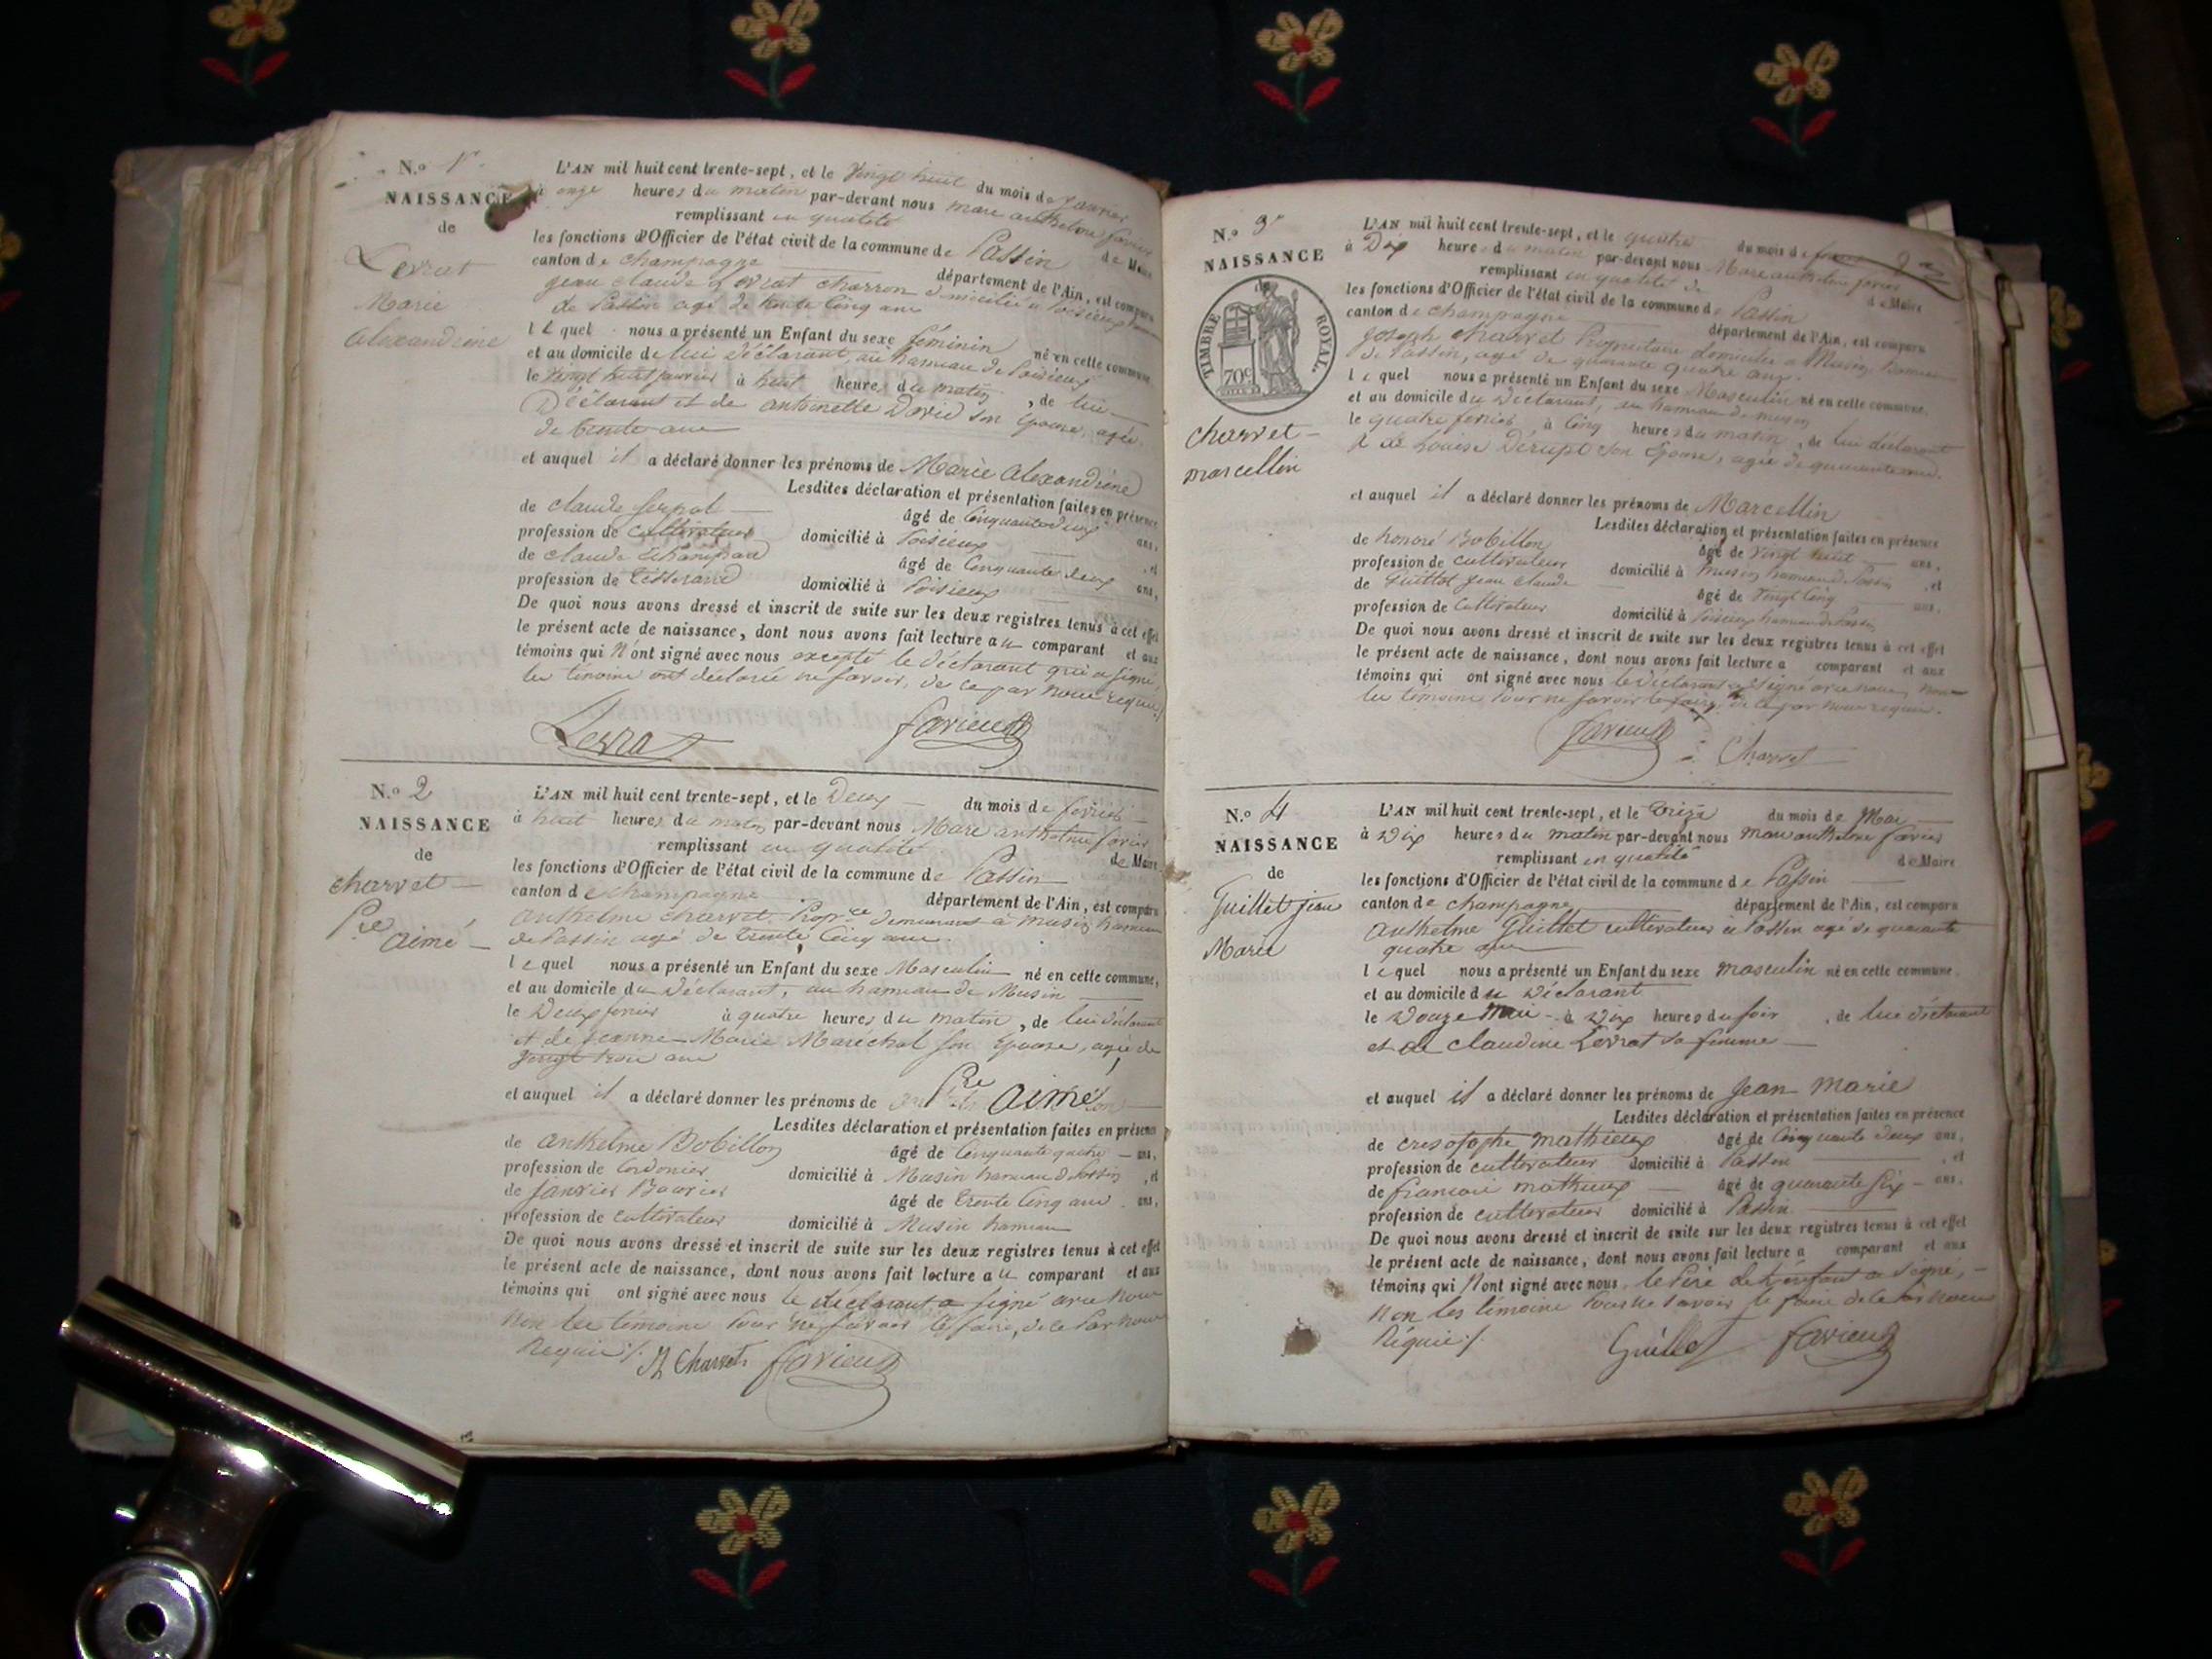 N.o 1er
NAISSANCE
de
Levrat
Marie
Alexandrine
L'AN mil huit cent trente-sept, et le vingt huit du mois de janvier
à onze heures du matin par-devant nous marc anthelme favier
remplissant en qualité de Maire
les fonctions d'Officier de l'état civil de la commune de Passin
canton de champagne département de l'Ain, est comparu
jean claude Levrat charron domicilié à Poisieux hameau
de Passin agé de trente cinq ans
lequel nous a présenté un Enfant du sexe féminin né en cette commune
et au domicile de lui déclarant, au hameau de Poisieux
le vingt huit janvier à huit heures du matin, de lui
Déclarant et de antoinette David son épouse, agée
de trente ans
et auquel il a déclaré donner les prénoms de Marie Alexandrine
Lesdites déclaration et présentation faites en présence
de claude serpol âgé de Cinquante deux ans,
profession de cultivateur domicilié à Poisieux , et
de claude âgé de Cinquante deux ans,
profession de Tisserand domicilié à Poisieux
De quoi nous avons dressé et inscrit de suite sur les deux registres tenus à cet effet
le présent acte de naissance, dont nous avons fait lecture au comparant et aux
témoins qui N'ont signé avec nous excepté le déclarant qui a signé,
les témoins ont déclaré ne savoir, de ce par nous requis
Levrat favier
N.o 2
NAISSANCE
de
charvet
Pre
aimé
L'AN mil huit cent trente-sept, et le Deux du mois de février
à huit heures du matin par-devant nous Marc anthelme favier
remplissant en qualité de Maire
les fonctions d'Officier de l'état civil de la commune de Passin
canton de champagne département de l'Ain, est comparu
anthelme charvet, Propre demeurant à musin hameau
de Passin agé de trente cinq ans
lequel nous a présenté un Enfant du sexe Masculin né en cette commune,
et au domicile du déclarant, au hameau de Musin
le Deux février à quatre heures du matin, de lui déclarant
et de jeanne Marie Maréchal son épouse, agée de
vingt trois ans
et auquel il a déclaré donner les prénoms de Pre aimé
Lesdites déclaration et présentation faites en présence
de anthelme Bobillon âgé de Cinquante quatre ans,
profession de Cordonier domicilié à Musin hameau de Passin , et
de janvier Bouvier âgé de trente cinq ans ans,
profession de cultivateur domicilié à Musin hameau
De quoi nous avons dressé et inscrit de suite sur les deux registres tenus à cet effet
le présent acte de naissance, dont nous avons fait lecture au comparant et aux
témoins qui ont signé avec nous le déclarant a signé avec nous
Non les témoins pour ne savoir le faire, de ce Par nous
Requis /. A Charvet favier
N.o 3e
NAISSANCE
de
TIMBRE ROYAL.
70c
charvet
marcellin
2
L'AN mil huit cent trente-sept, et le quatre du mois de
à Dix heures du matin par-devant nous Marc anthelme favier
remplissant en qualité de de Maire
les fonctions d'Officier de l'état civil de la commune de Passin
canton de champagne département de l'Ain, est comparu
joseph charvet Propriétaire domicilié à Musin hameau
de Passin, agé de quarante quatre ans.
lequel nous a présenté un Enfant du sexe Masculin né en cette commune,
et au domicile du déclarant, au hameau de musin
le quatre février, à cinq heures du matin, de lui déclarant
& de Louise Derupt son épouse, agée de quarante
et auquel il a déclaré donner les prénoms de Marcellin
Lesdites déclaration et présentation faites en présence
de honoré Bobillon âgé de vingt huit ans,
profession de cultivateur domicilié à musin hameau de Passin , et
de Guillot jean claude âgé de vingt cinq ans,
profession de Cultivateur domicilié à Poisieux hameau de Passin
De quoi nous avons dressé et inscrit de suite sur les deux registres tenus à cet effet
le présent acte de naissance, dont nous avons fait lecture a comparant et aux
témoins qui ont signé avec nous le déclarant a signé avec nous, non
les témoins pour ne savoir le faire, de ce par nous requis.
favier Charvet
N.o 4
NAISSANCE
de
Guillet jean
Marie
L'AN mil huit cent trente-sept, et le treize du mois de Mai
à Dix heures du matin par-devant nous marc anthelme favier
remplissant en qualité de Maire
les fonctions d'Officier de l'état civil de la commune de Passin
canton de champagne département de l'Ain, est comparu
anthelme Guillet cultivateur à Passin agé de quarante
quatre ans
lequel nous a présenté un Enfant du sexe masculin né en cette commune,
et au domicile du déclarant
le Douze Mai à Dix heures du soir , de lui déclarant
et de claudine Levrat sa femme
et auquel il a déclaré donner les prénoms de jean marie
Lesdites déclaration et présentation faites en présence
de cresotophe mathieux âgé de Cinquante deux ans,
profession de cultivateur domicilié à Passin , et
de francois mathieux âgé de quarante six ans.
profession de cultivateur domicilié à Passin
De quoi nous avons dressé et inscrit de suite sur les deux registres tenus à cet effet
le présent acte de naissance, dont nous avons fait lecture a comparant et aux
témoins qui Nont signé avec nous, le Père de l'enfant a signé,
Non les témoins pour ne savoir le faire de ce par nous
Réquis /. Guillet favier